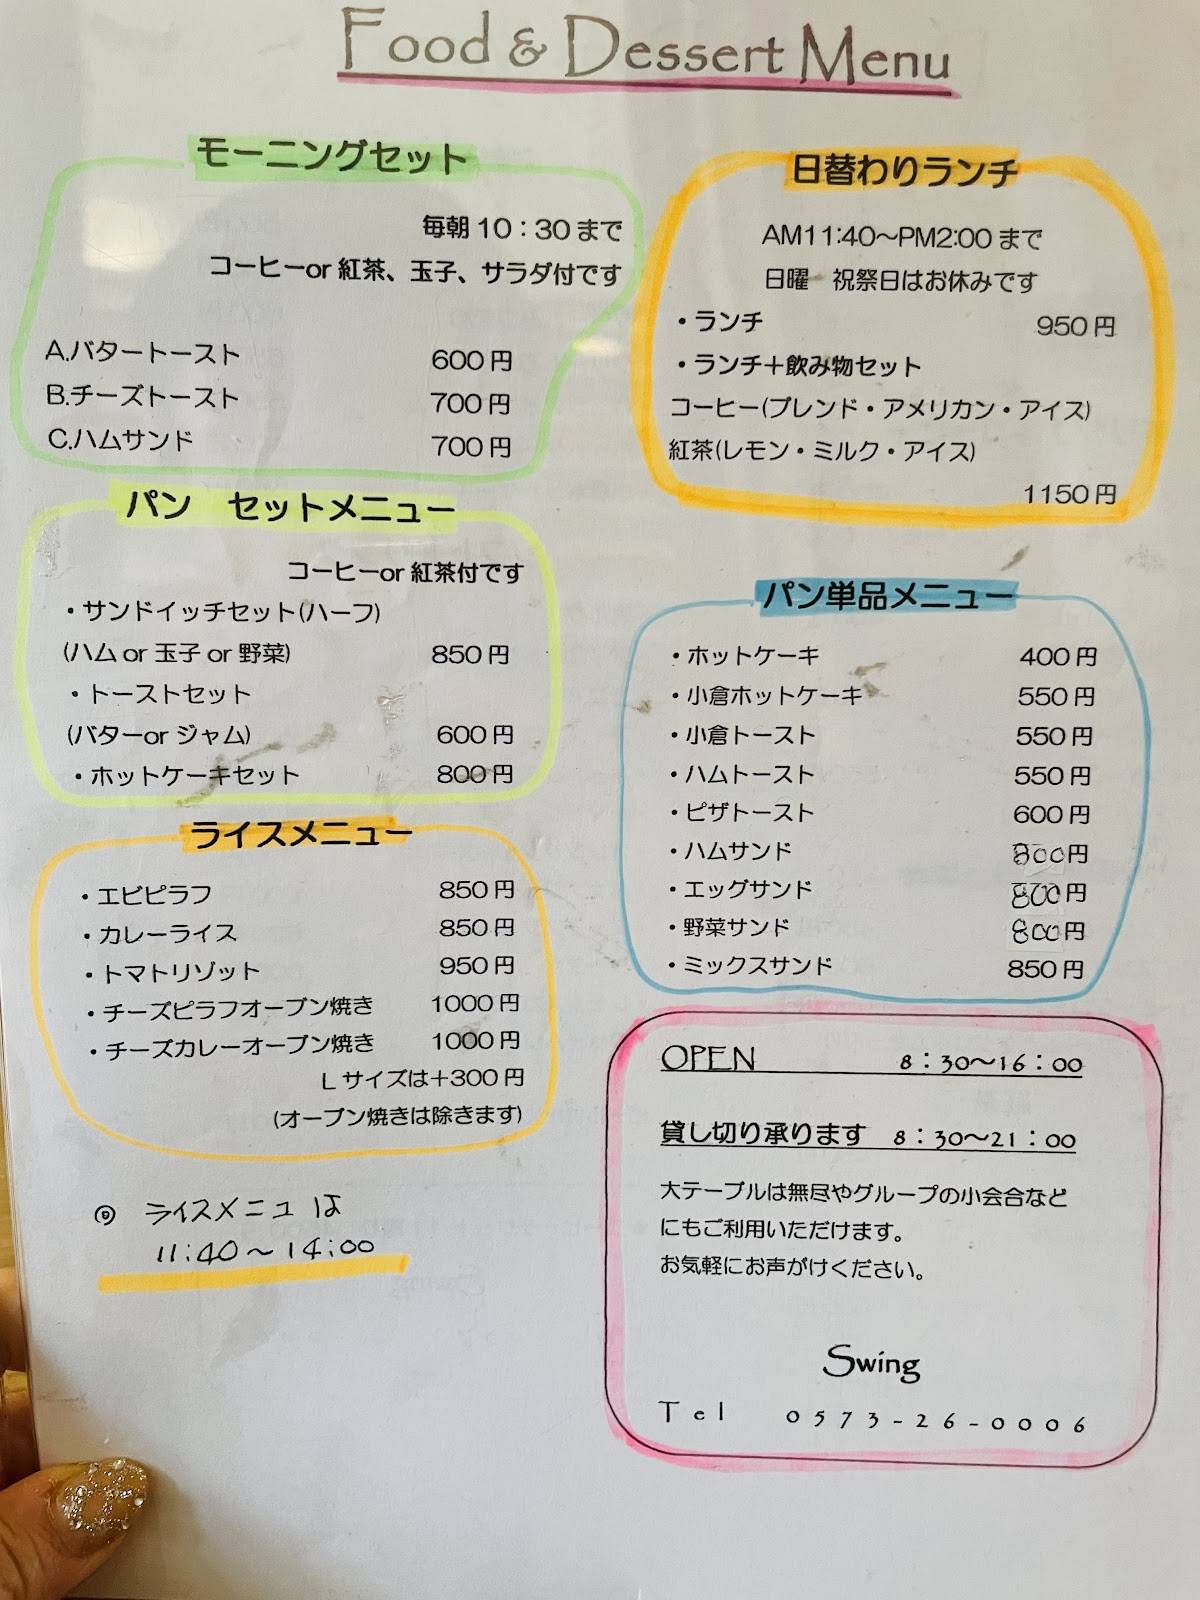 Food & Dessert Menu
モーニングセット
毎朝 10：30 まで
コーヒーor 紅茶、玉子、サラダ付です
A.バタートースト 600 円
B.チーズトースト 700 円
C.ハムサンド 700 円
パン　セットメニュー
コーヒーor 紅茶付です
・サンドイッチセット(ハーフ)
(ハム or 玉子 or 野菜) 850 円
・トーストセット
(バターor ジャム) 600 円
・ホットケーキセット 800 円
ライスメニュー
・エビピラフ 850 円
・カレーライス 850 円
・トマトリゾット 950 円
・チーズピラフオーブン焼き 1000 円
・チーズカレーオーブン焼き 1000 円
L サイズは＋300 円
(オーブン焼きは除きます)
◎ ライスメニュは
11:40～14:00
日替わりランチ
AM11:40～PM2:00 まで
日曜　祝祭日はお休みです
・ランチ 950 円
・ランチ＋飲み物セット
コーヒー(ブレンド・アメリカン・アイス)
紅茶(レモン・ミルク・アイス)
1150 円
パン単品メニュー
・ホットケーキ 400 円
・小倉ホットケーキ 550 円
・小倉トースト 550 円
・ハムトースト 550 円
・ピザトースト 600 円
・ハムサンド 800円
・エッグサンド 800 円
・野菜サンド 800 円
・ミックスサンド 850 円
OPEN 8：30～16：00
貸し切り承ります 8：30～21：00
大テーブルは無尽やグループの小会合など
にもご利用いただけます。
お気軽にお声がけください。
Swing
Tel 0573-26-0006